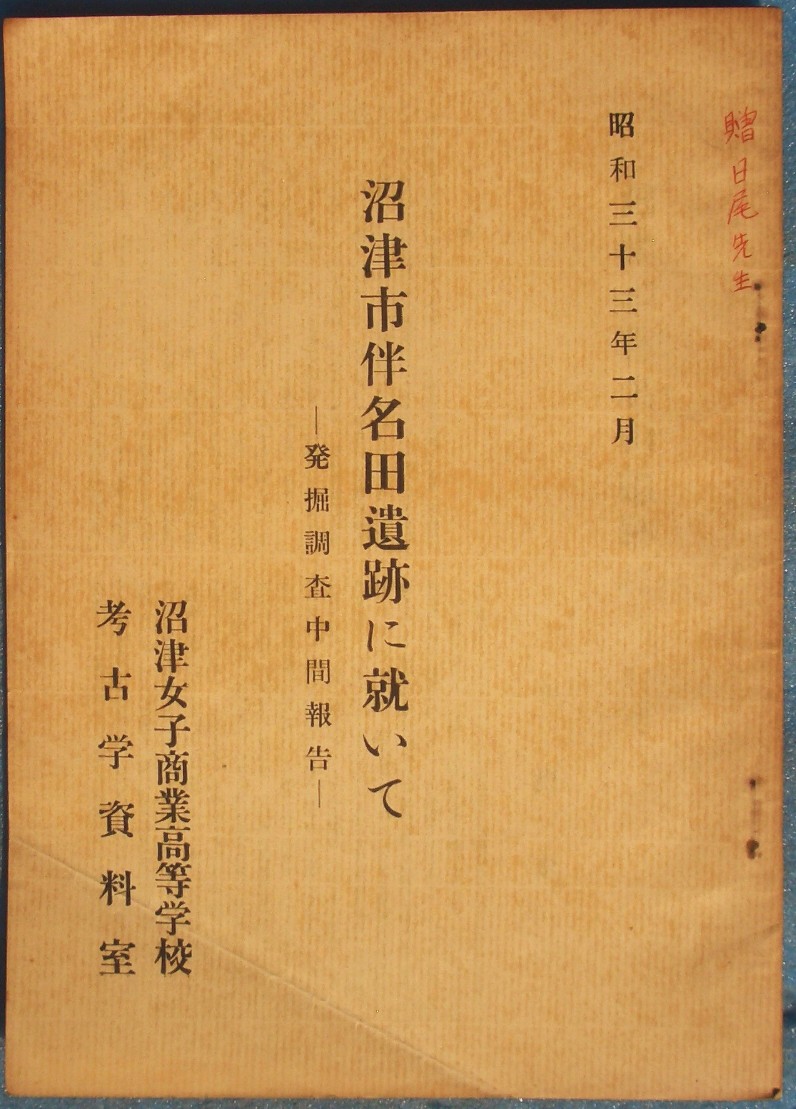 贈日尾先生
昭和三十三年二月
沼津市伴名田遺跡に就いて
―発掘調査中間報告―
沼津女子商業高等学校
考古学資料室